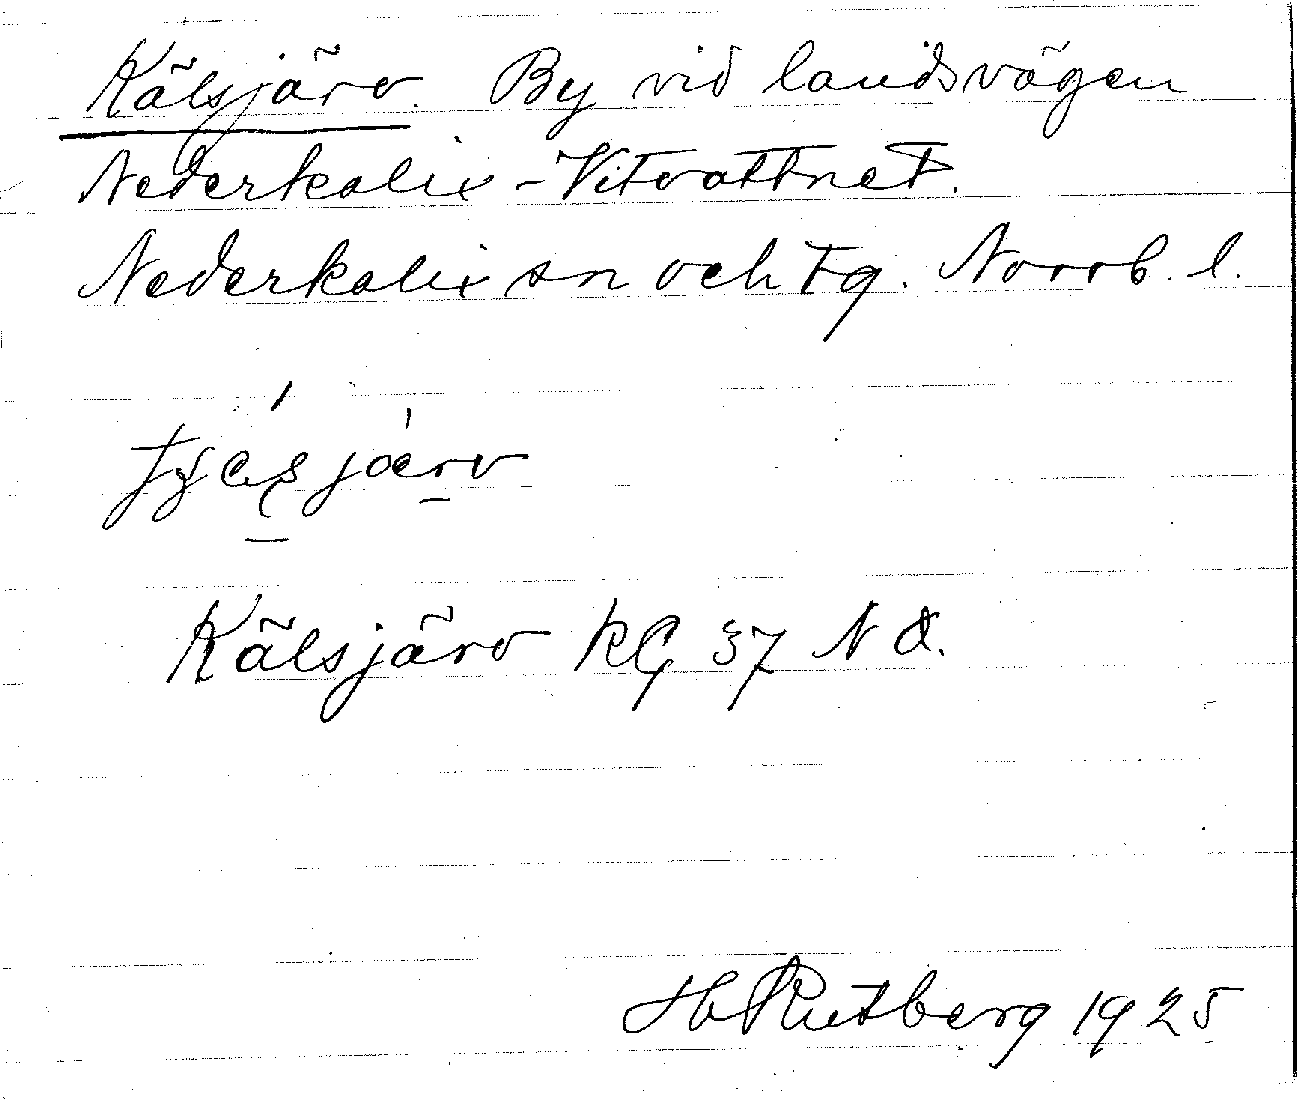 Kälsjärv. By vid landsvägen
Nederkalix - Vitvattnet.
Nederkalix sn och tg. Norrb. l.
Kälsjärv KG 37 N
H Rutberg 1925